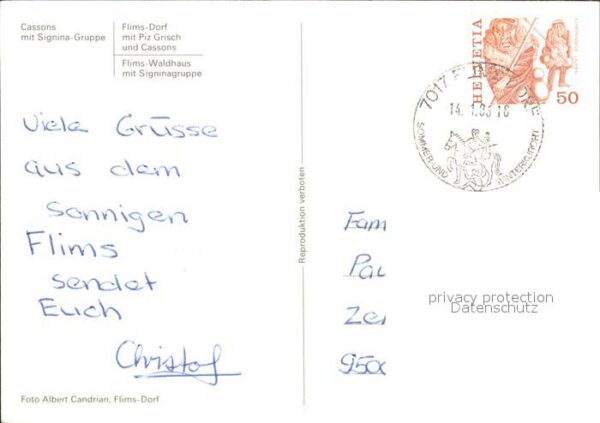 Cassons
mit Signina-Gruppe
Flims-Dorf
mit Piz Grisch
und Cassons
Flims-Waldhaus
mit Signinagruppe
HELVETIA
50
7017 FLIMS DORF
14.1.85 16
SOMMER UND WINTERSPORT
Viele Grüsse
aus dem
sonnigen
Flims
sendet
Euch
Christof
Reproduktion verboten
Fam
Pau
Zer
9500
privacy protection
Datenschutz
Foto Albert Candrian, Flims-Dorf